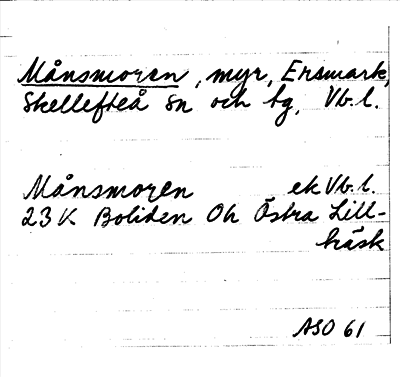 Månsmoren, myr, Ersmark,
Skellefteå sn och tg, Vb.l.
Månsmoren ek Vb.l.
23 K Boliden Oh Östra Lill-
träsk
ASO 61